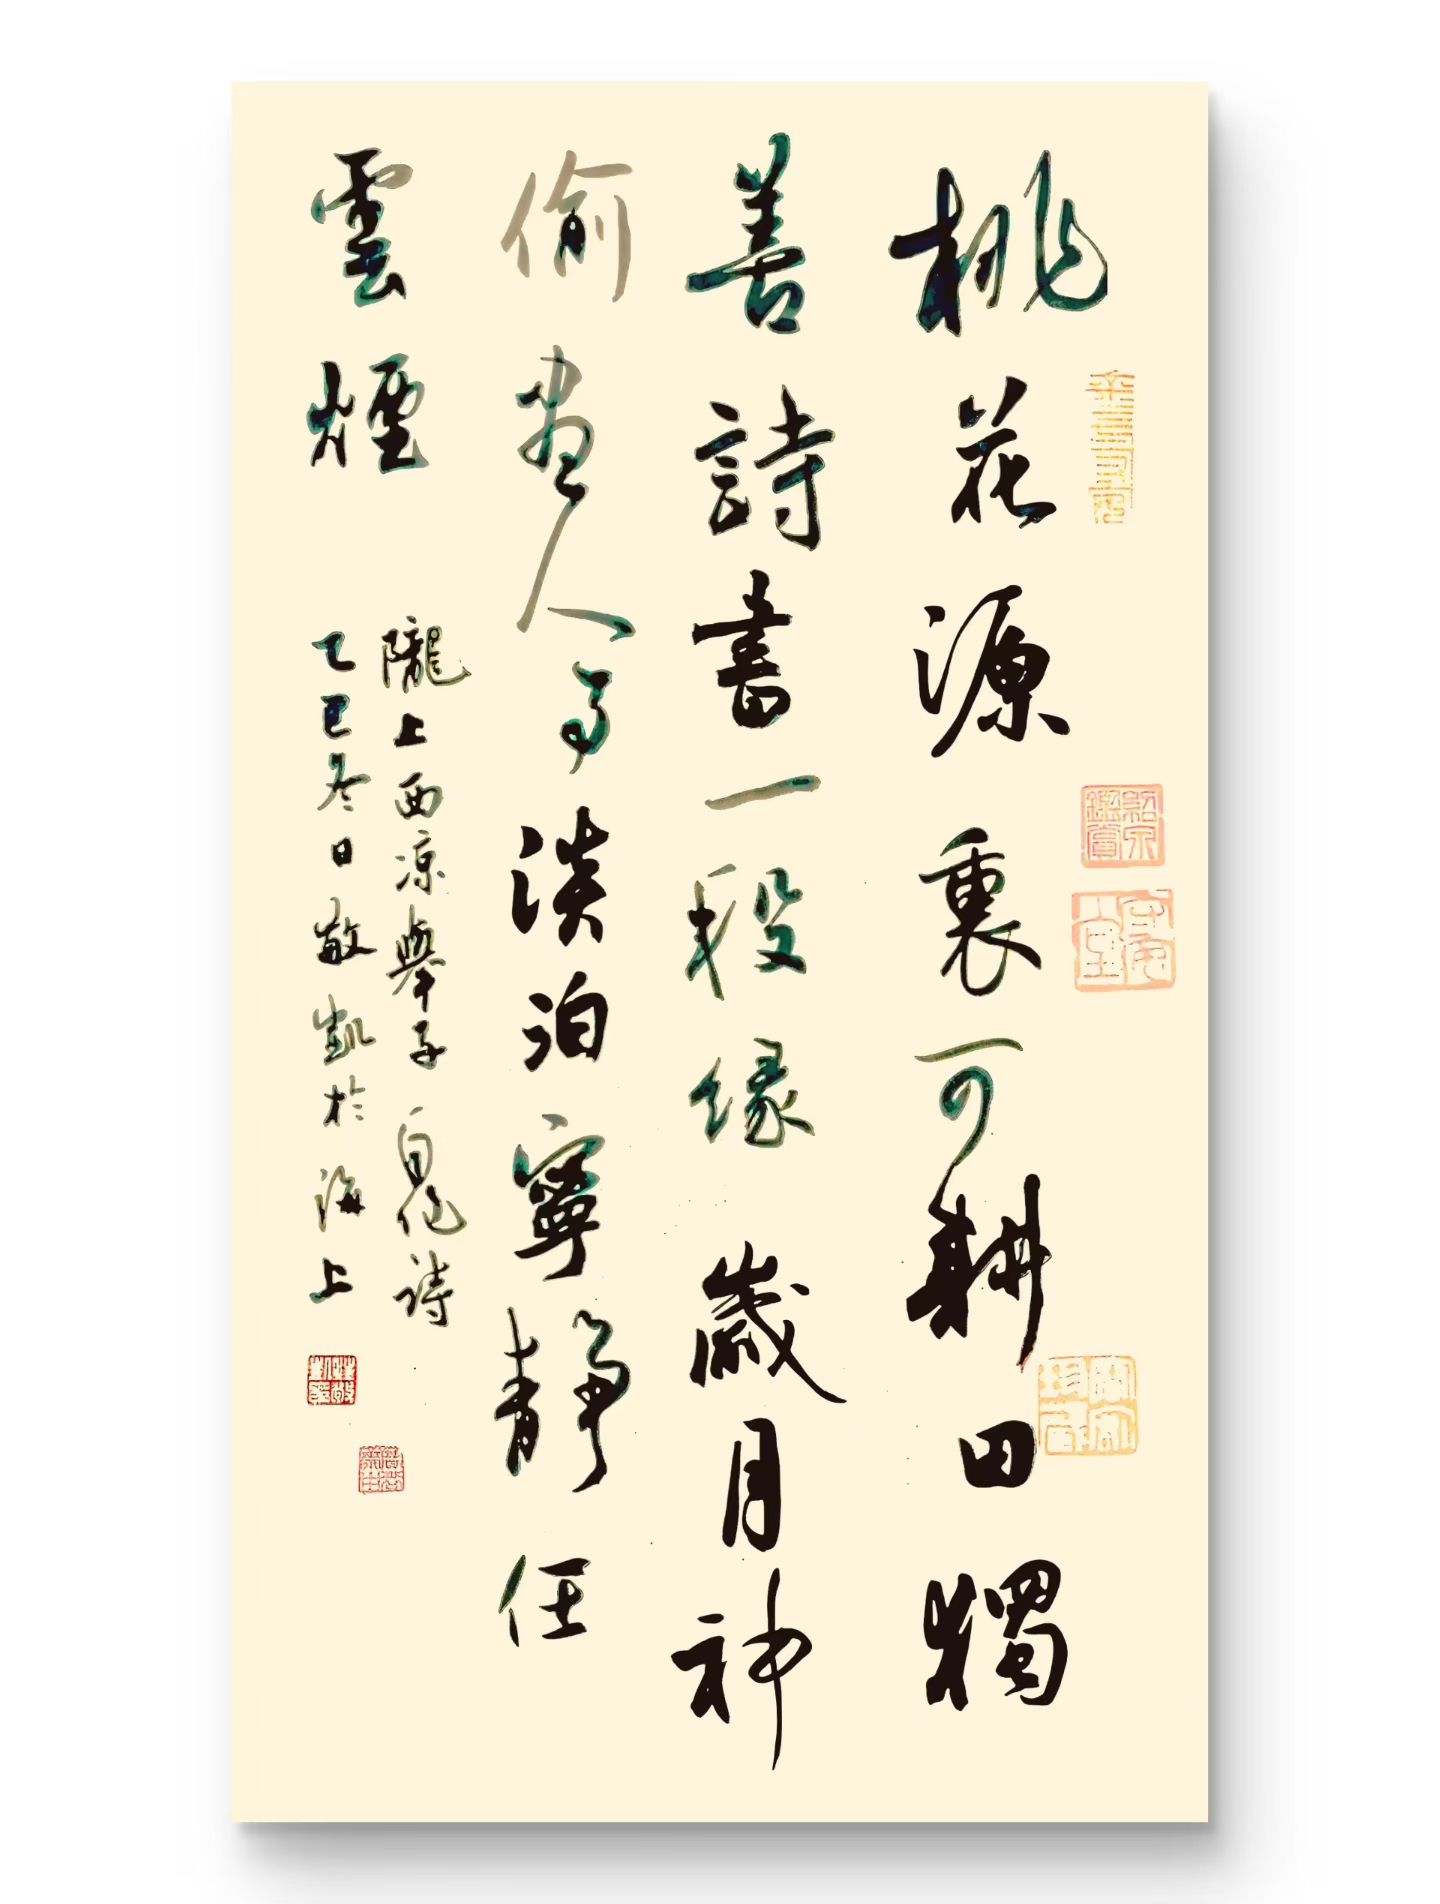 桃花源裏可耕田獨
善詩書一段緣歲月神
偷盡人易淡泊寧靜任
雲煙
隴上西凉舉子自佗詩
乙巳冬日敬凱於海上